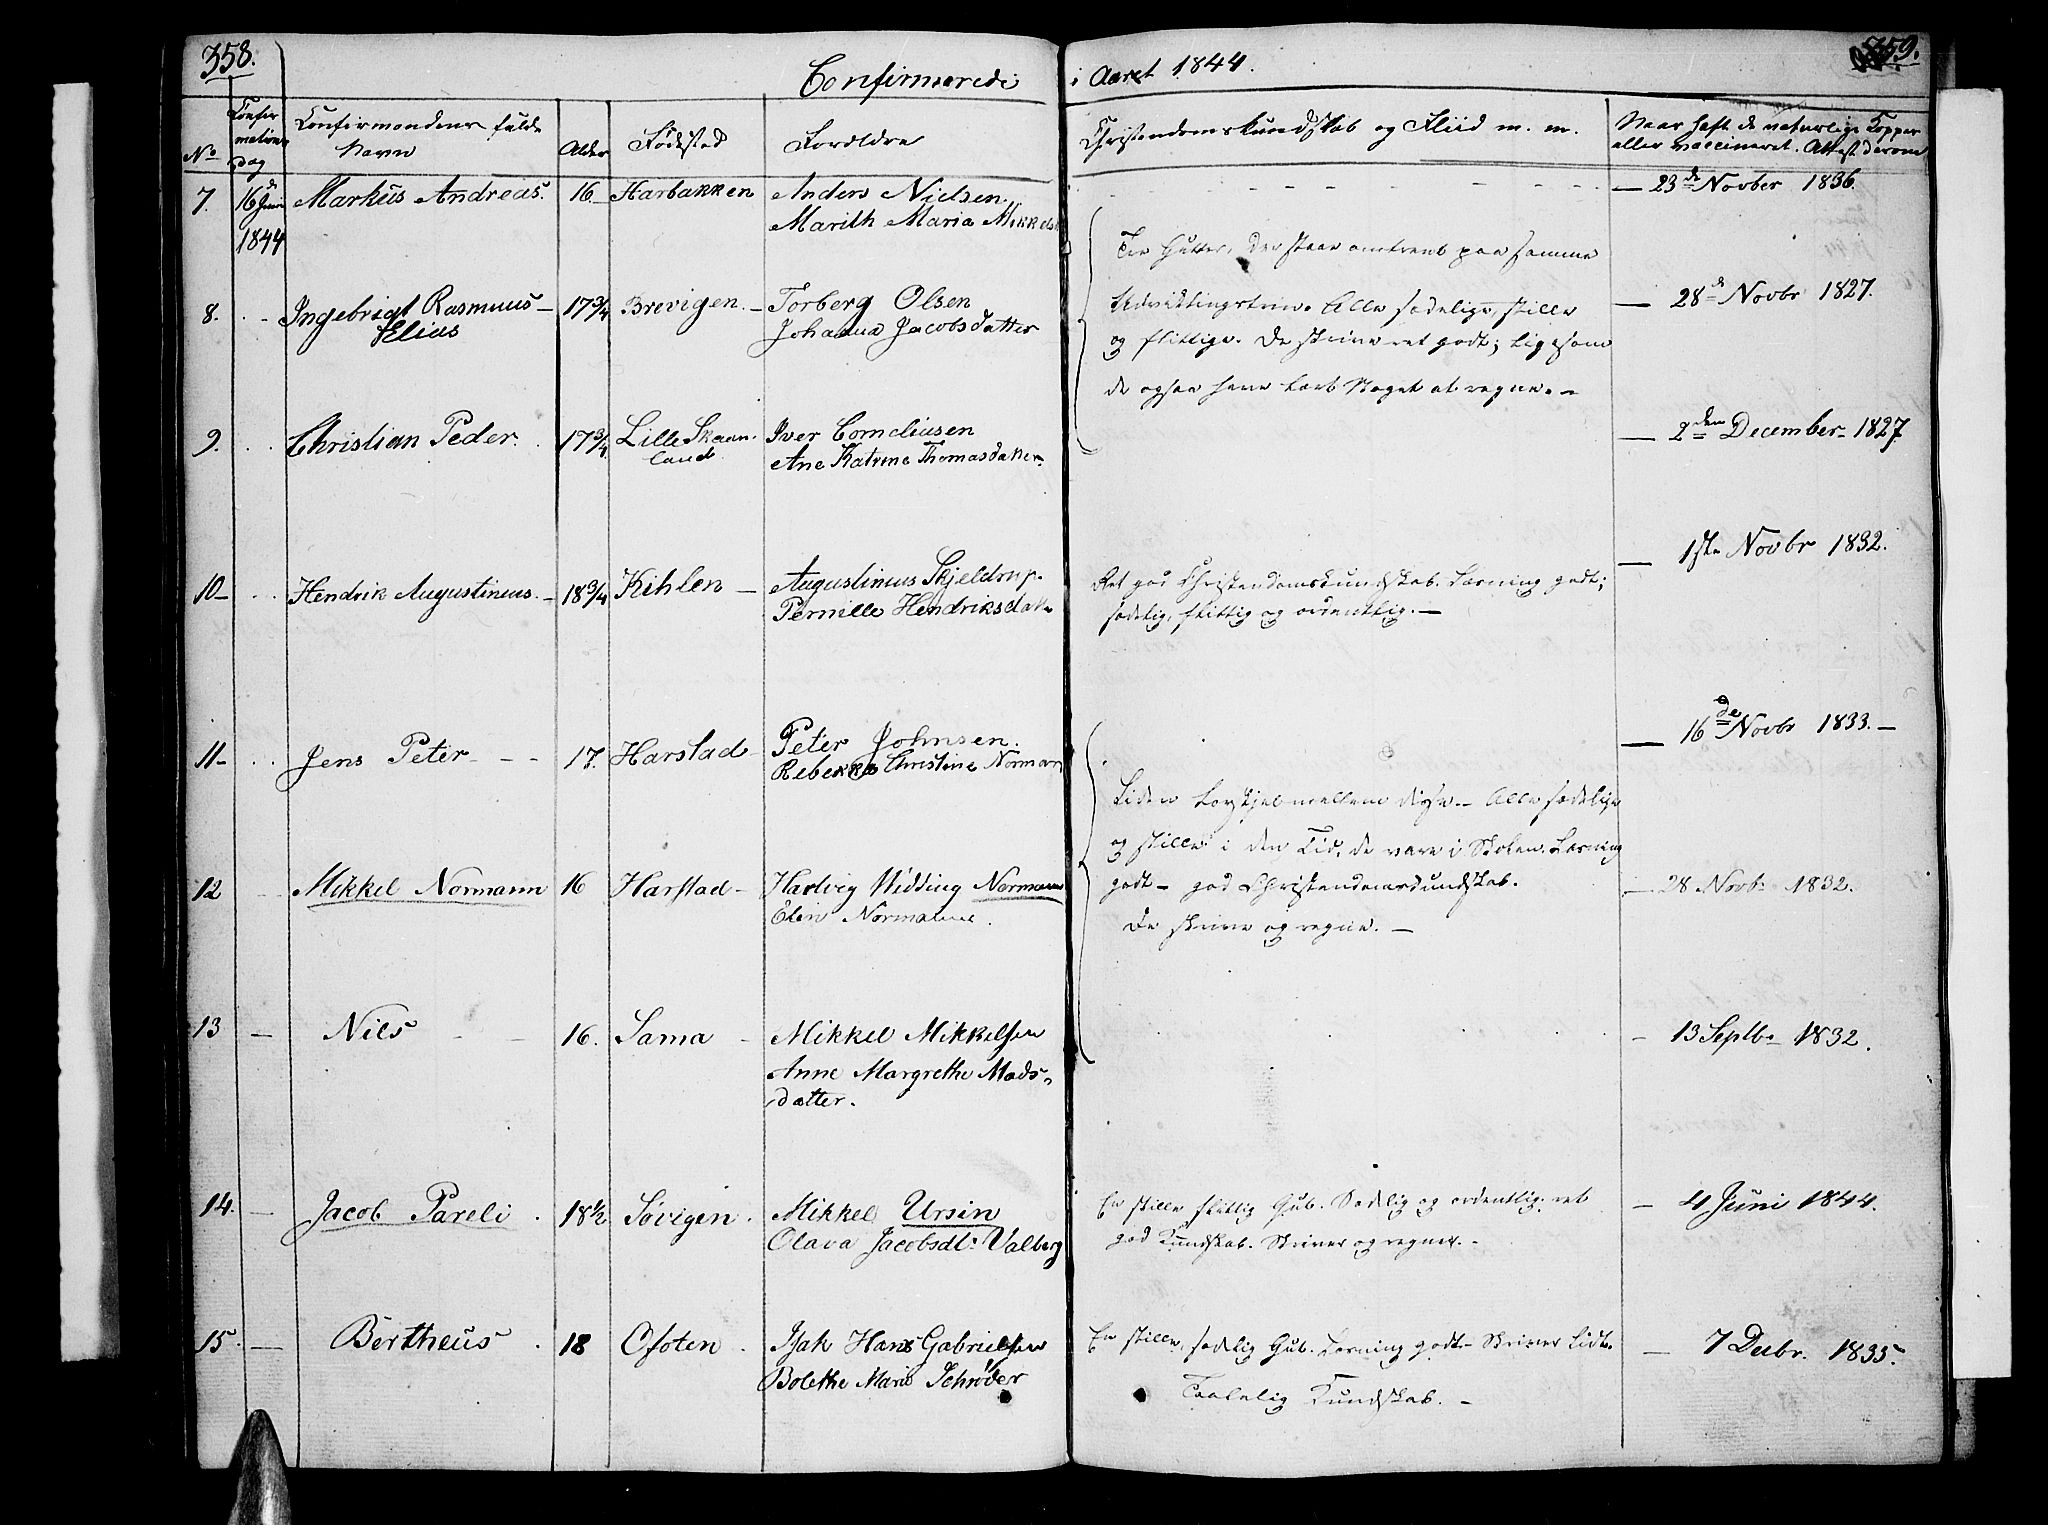 358.
359.
Confirmerede i Aaret 1844.
No
Confirmations Dag
Confirmandens fulde Navn
Alder
Födested
Forældre
Christendomskundskab og Fliid m. m.
Naar haft de naturlige Kopper eller vaccineret. Attest derom
7. 16 de Junii 1844 Markus Andreas. 16 Harbakken Anders Nielsen. — 23de Novber 1836.
Marith Maria Mikkels
Tre Gutter, der staae omtrent paa samme
Udviklingstrin. Alle sædelige, stille
og flittige. De skrive ret godt; ligesom
de ogsaa have lært Noget at regne. –
8. Ingebrigt Rasmuus — 17 3/4 Brevigen. – Torberg Olsen — 28de Novbr 1827.
Elias Johanna Jacobsdatter
9. Christian Peder. 17 3/4 Lille Skaanland Iver Corneliusen — 2den December 1827
Ane Katrine Thomasdatter.
10 – Hendrik Augustinus. – 18 3/4 Kihlen — Augustinus Skjeldrup. — 1ste Novbr 1832.
Pernille Hendriksdatr
Ret god Christendomskundskab. Læsning godt;
sædelig, flittig og ordentlig. —
11 – Jens Peter - - - 17. Harstad – Peter Johnsen. — 16de Novbr 1833. —
Rebekka Christine Norman
Liden Forskjel mellem disse. – Alle sædelige
og stille i den Tid, de vare i Skolen. Læsning
godt – god Christendomskundskab.
De skrive og regne. —
12 Mikkel Normann 16 Harstad – Hartvig Widding Normann — 28 Novbr 1832.
Elen Normanne.
13 — Nils 16. Sama – Mikkel Mikkelsen – 13 Septbr 1832.
Anne Margrethe Madsdatter.
14. — Jacob Pareli. 18 1/2 Sörigen. Mikkel Ursin – 4 Juni 1844.
Olava Jacobsdt: Valberg
En stille flittig Gut. Sædelig og ordentlig. ret
god Kundskab. Skriver og regner. –
15. — Bertheus. 18 Ofoten. Isak Hans Gabrielsen — 7 Decbr. 1835.
Bolethe Marie Schröder
En stille, sædelig Gut. Læsning godt – Skriver lidt.
Taalelig Kundskab. –